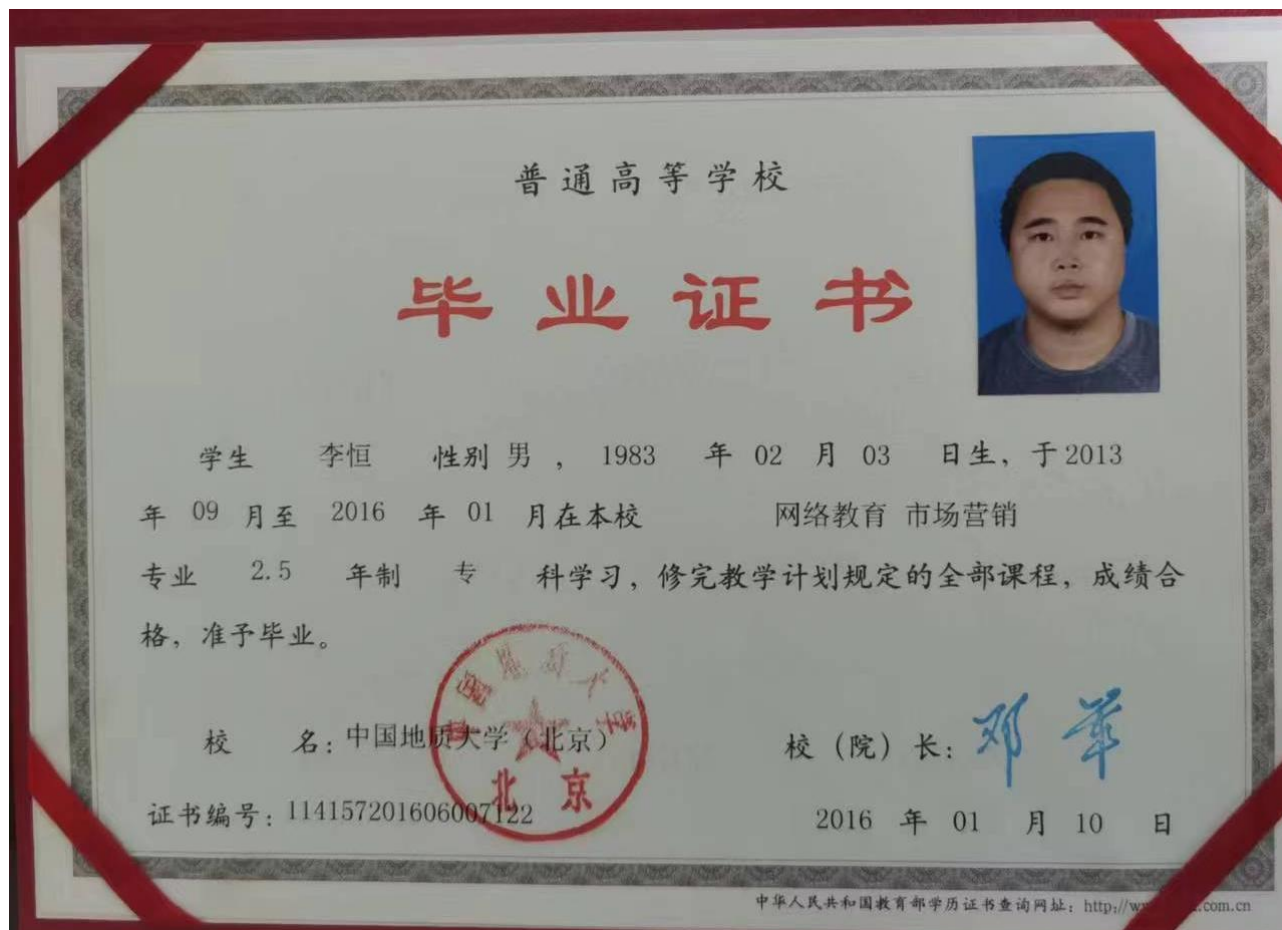 普通高等学校
毕业证书
学生 李恒 性别 男 , 1983 年 02 月 03 日生, 于2013
年 09 月至 2016 年 01 月在本校 网络教育 市场营销
专业 2.5 年制 专 科学习, 修完教学计划规定的全部课程, 成绩合
格, 准予毕业。
中国地质大学
北京
校 名: 中国地质大学 (北京) 校 (院) 长: 邓军
证书编号: 114157201606007122 2016 年 01 月 10 日
中华人民共和国教育部学历证书查询网址: http://w .com.cn